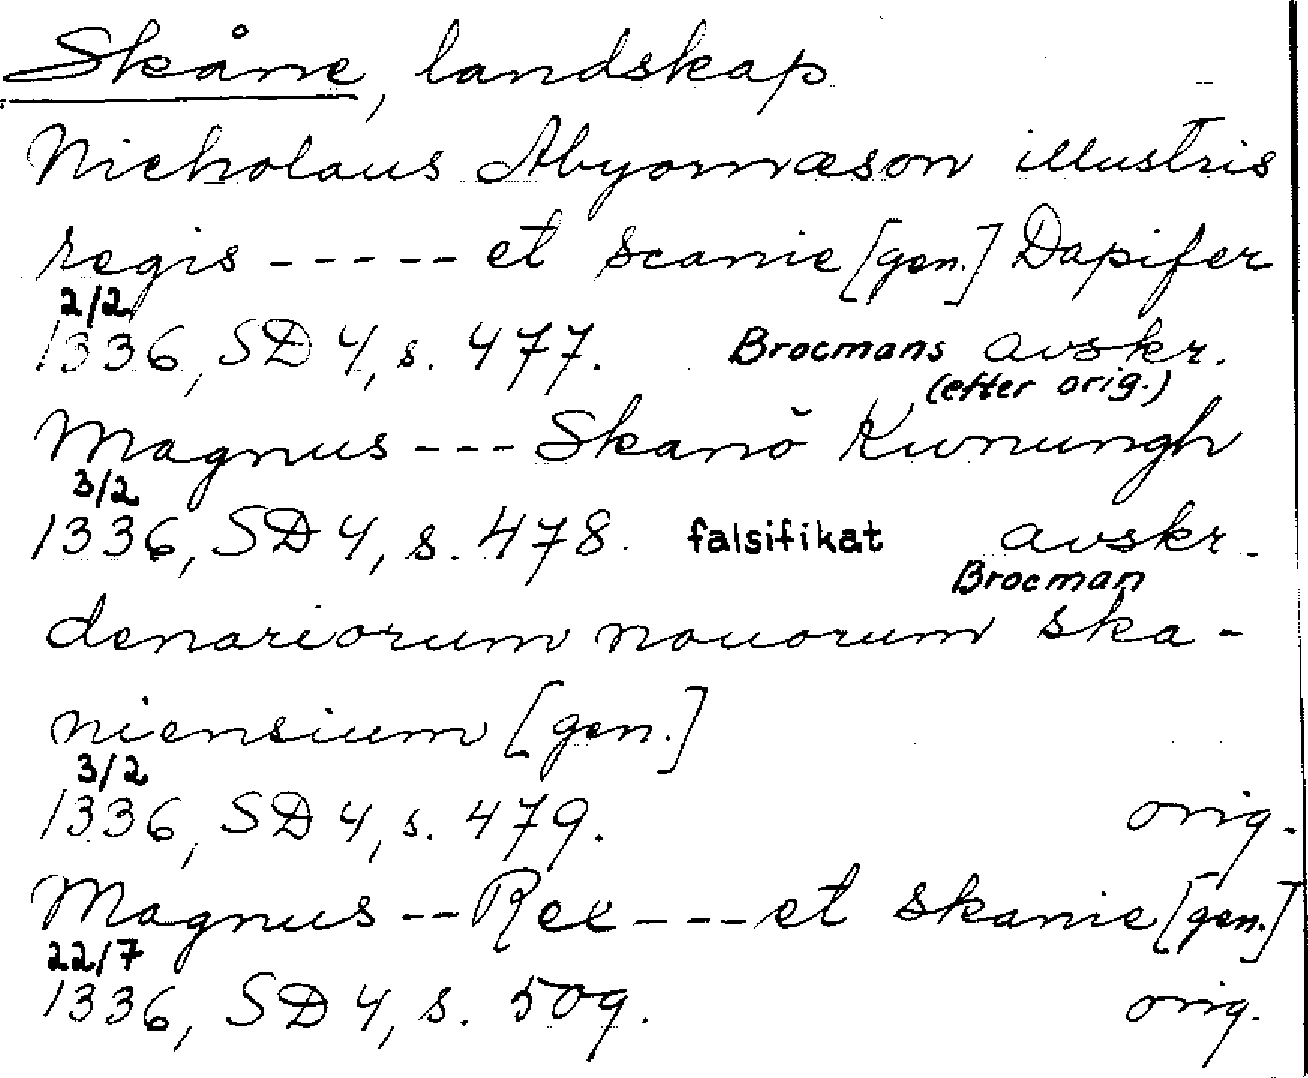 Skåne, landskap
Nicholaus Abyornæson illustris
regis ----- et scanie [gen.] Dapifer
2/2
1336, SD 4, s. 477. Brocmans avskr.
(efter orig.)
Magnus --- Skanö Kunungh
3/2
1336, SD 4, s. 478. falsifikat avskr.
Brocman
denariorum nouorum ska-
niensium [gen.]
3/2
1336, SD 4, s. 479. orig.
Magnus -- Rex --- et skanie [gen.]
22/7
1336, SD 4, s. 509. orig.